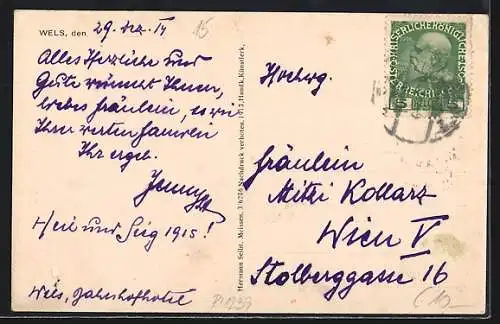 WELS, den 29. Dez. 14
15
Alles Herzliche und
Gute wünscht Ihnen,
liebes Fräulein, sowie
Ihrer werten Familie
Ihr ergeb.
Jenny
Heil und Sieg 1915!
Wels, Bahnhofhotel
Hermann Seibt, Meissen. 376270 Nachdruck verboten. 1913. Handk. Künstlerk.
KAISERLICHE KÖNIGLICHE ÖSTERREICHISCHE
5 5
Hochwg.
Fräulein
Mitzi Kollarz
Wien V
Stolberggasse 16